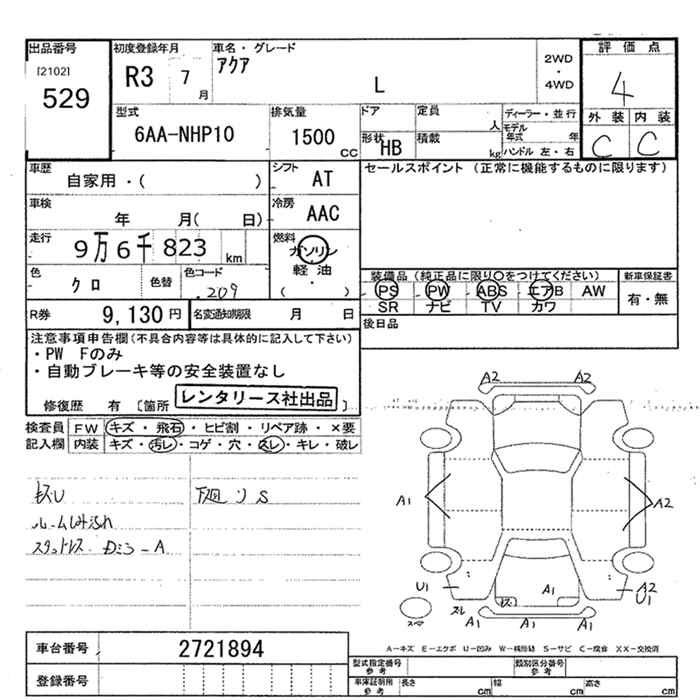 出品番号
[2102]
529
初度登録年月
R3 7
月
車名・グレード
アクア
L
2WD
・
4WD
評価点
4
外装 内装
C C
型式
6AA-NHP10
排気量
1500
CC
ドア
定員
人
ディーラー・並行
モデル
年式 年
形状 HB
積載
kg
ハンドル 左・右
車歴
自家用・( )
シフト
AT
セールスポイント (正常に機能するものに限ります)
車検
年 月( 日)
冷房
AAC
走行
9万6千823 km
燃料
ガソリン
軽油
( )
色
クロ
色替
色コード
209
装備品 (純正品に限り○をつけてください)
新車保証書
PS PW ABS エアB AW
有・無
SR ナビ TV カワ
R券
9,130 円
名変通知期限 月 日
後日品
注意事項申告欄 (不具合内容等は具体的に記入して下さい)
・PW Fのみ
・自動ブレーキ等の安全装置なし
修復歴 有 [箇所 レンタリース社出品 ]
検査員 FW キズ・飛石・ヒビ割・リペア跡・×要
記入欄 内装 キズ・汚レ・コゲ・穴・スレ・キレ・破レ
下廻りS
A2 A2
A1
A2
U1
スレ
A1
A2
U1
A1 A1
A-キズ E-エクボ U-凹み W-補修跡 S-サビ C-腐食 XX-交換済
車台番号
2721894
登録番号
型式指定番号
参考
類別区分番号
参考
車庫証明用
参考
長さ cm
幅 cm
高さ cm